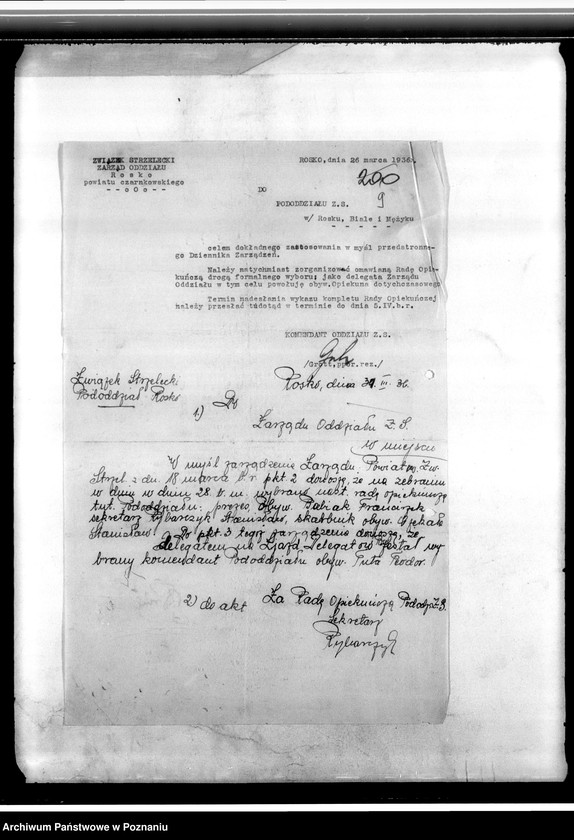 ZWIĄZEK STRZELECKI
ZARZĄD ODDZIAŁU
R o s k o
powiatu czarnkowskiego
- - o 0 o - -
ROSKO, dnia 26 marca 1936.
200
9
DO
PODODDZIAŁU Z.S.
w/ Rosku, Białe i Mężyku
- - - - -
celem dokładnego zastosowania w myśl przedstronne-
go Dziennika Zarządzeń.
Należy natychmiast zorganizować omawianą Radę Opie-
kuńczą drogą formalnego wyboru; jako delegata Zarządu
Oddziału w tym celu powołuję obyw.Opiekuna dotychczasowego
Termin nadesłania wykazu kompletu Rady Opiekuńczej
należy przesłać tudotąd w terminie do dnia 5.IV.b.r.
KOMENDANT ODDZIAŁU Z.S.
/Grott,ppor.rez./
Związek Strzelecki
Pododdział Rosko
Rosko, dnia 31. III. 36.
1) Do
Zarządu Oddziału Z.S.
w miejscu
W myśl zarządzenia Zarządu Powiatow. Zw.
Strzel. z dn. 18 marca b.r. pkt. 2 donoszę, że na zebraniu
w dniu w dniu 28. b. m. wybrano nast. radę opiekuńczą
tut. Pododdziału: prezes obyw. Franciszek
sekretarz Rybarczyk Stanisław, skarbnik obyw.
Stanisław. Do pkt. 3 tegoż zarządzenia donoszę, że
delegatem na Zjazd Delegatów został wy-
brany komendant Pododdziału obyw. Puta Teodor.
2) do akt
Za Radę Opiekuńczą Pododz. Z.S.
Sekretarz
Rybarczyk
Archiwum Państwowe w Poznaniu